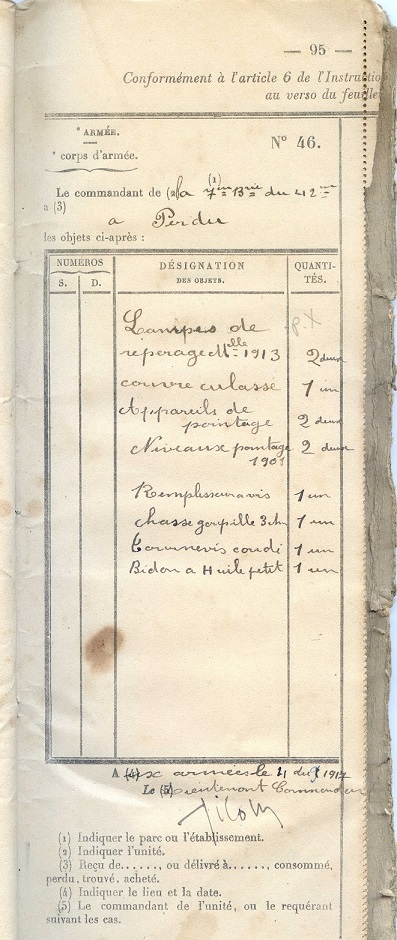 — 95 —
Conformément à l'article 6 de l'Instructio
au verso du feuille
* ARMÉE.
* corps d'armée.
N° 46.
(1)
Le commandant de (2) la 7me Brie du 42me
a (3)
a Perdu
les objets ci-après :
NUMÉROS
S. D.
DÉSIGNATION
DES OBJETS.
QUANTI-
TÉS.
Lampes de
réperage Mlle 1913 2 deux
couvre culasse 1 un
Appareils de
pointage 2 deux
Niveaux pointage 2 deux
1901
Remplisseur avis 1 un
chasse goupille 3 1 un
Tournevis coudé 1 un
Bidon a Huile petit 1 un
A (4) ux armées le 11 1917
Le (5) Lieutenant Commandan
(1) Indiquer le parc ou l'établissement.
(2) Indiquer l'unité.
(3) Reçu de......, ou délivré à......, consommé,
perdu, trouvé, acheté.
(4) Indiquer le lieu et la date.
(5) Le commandant de l'unité, ou le requérant
suivant les cas.